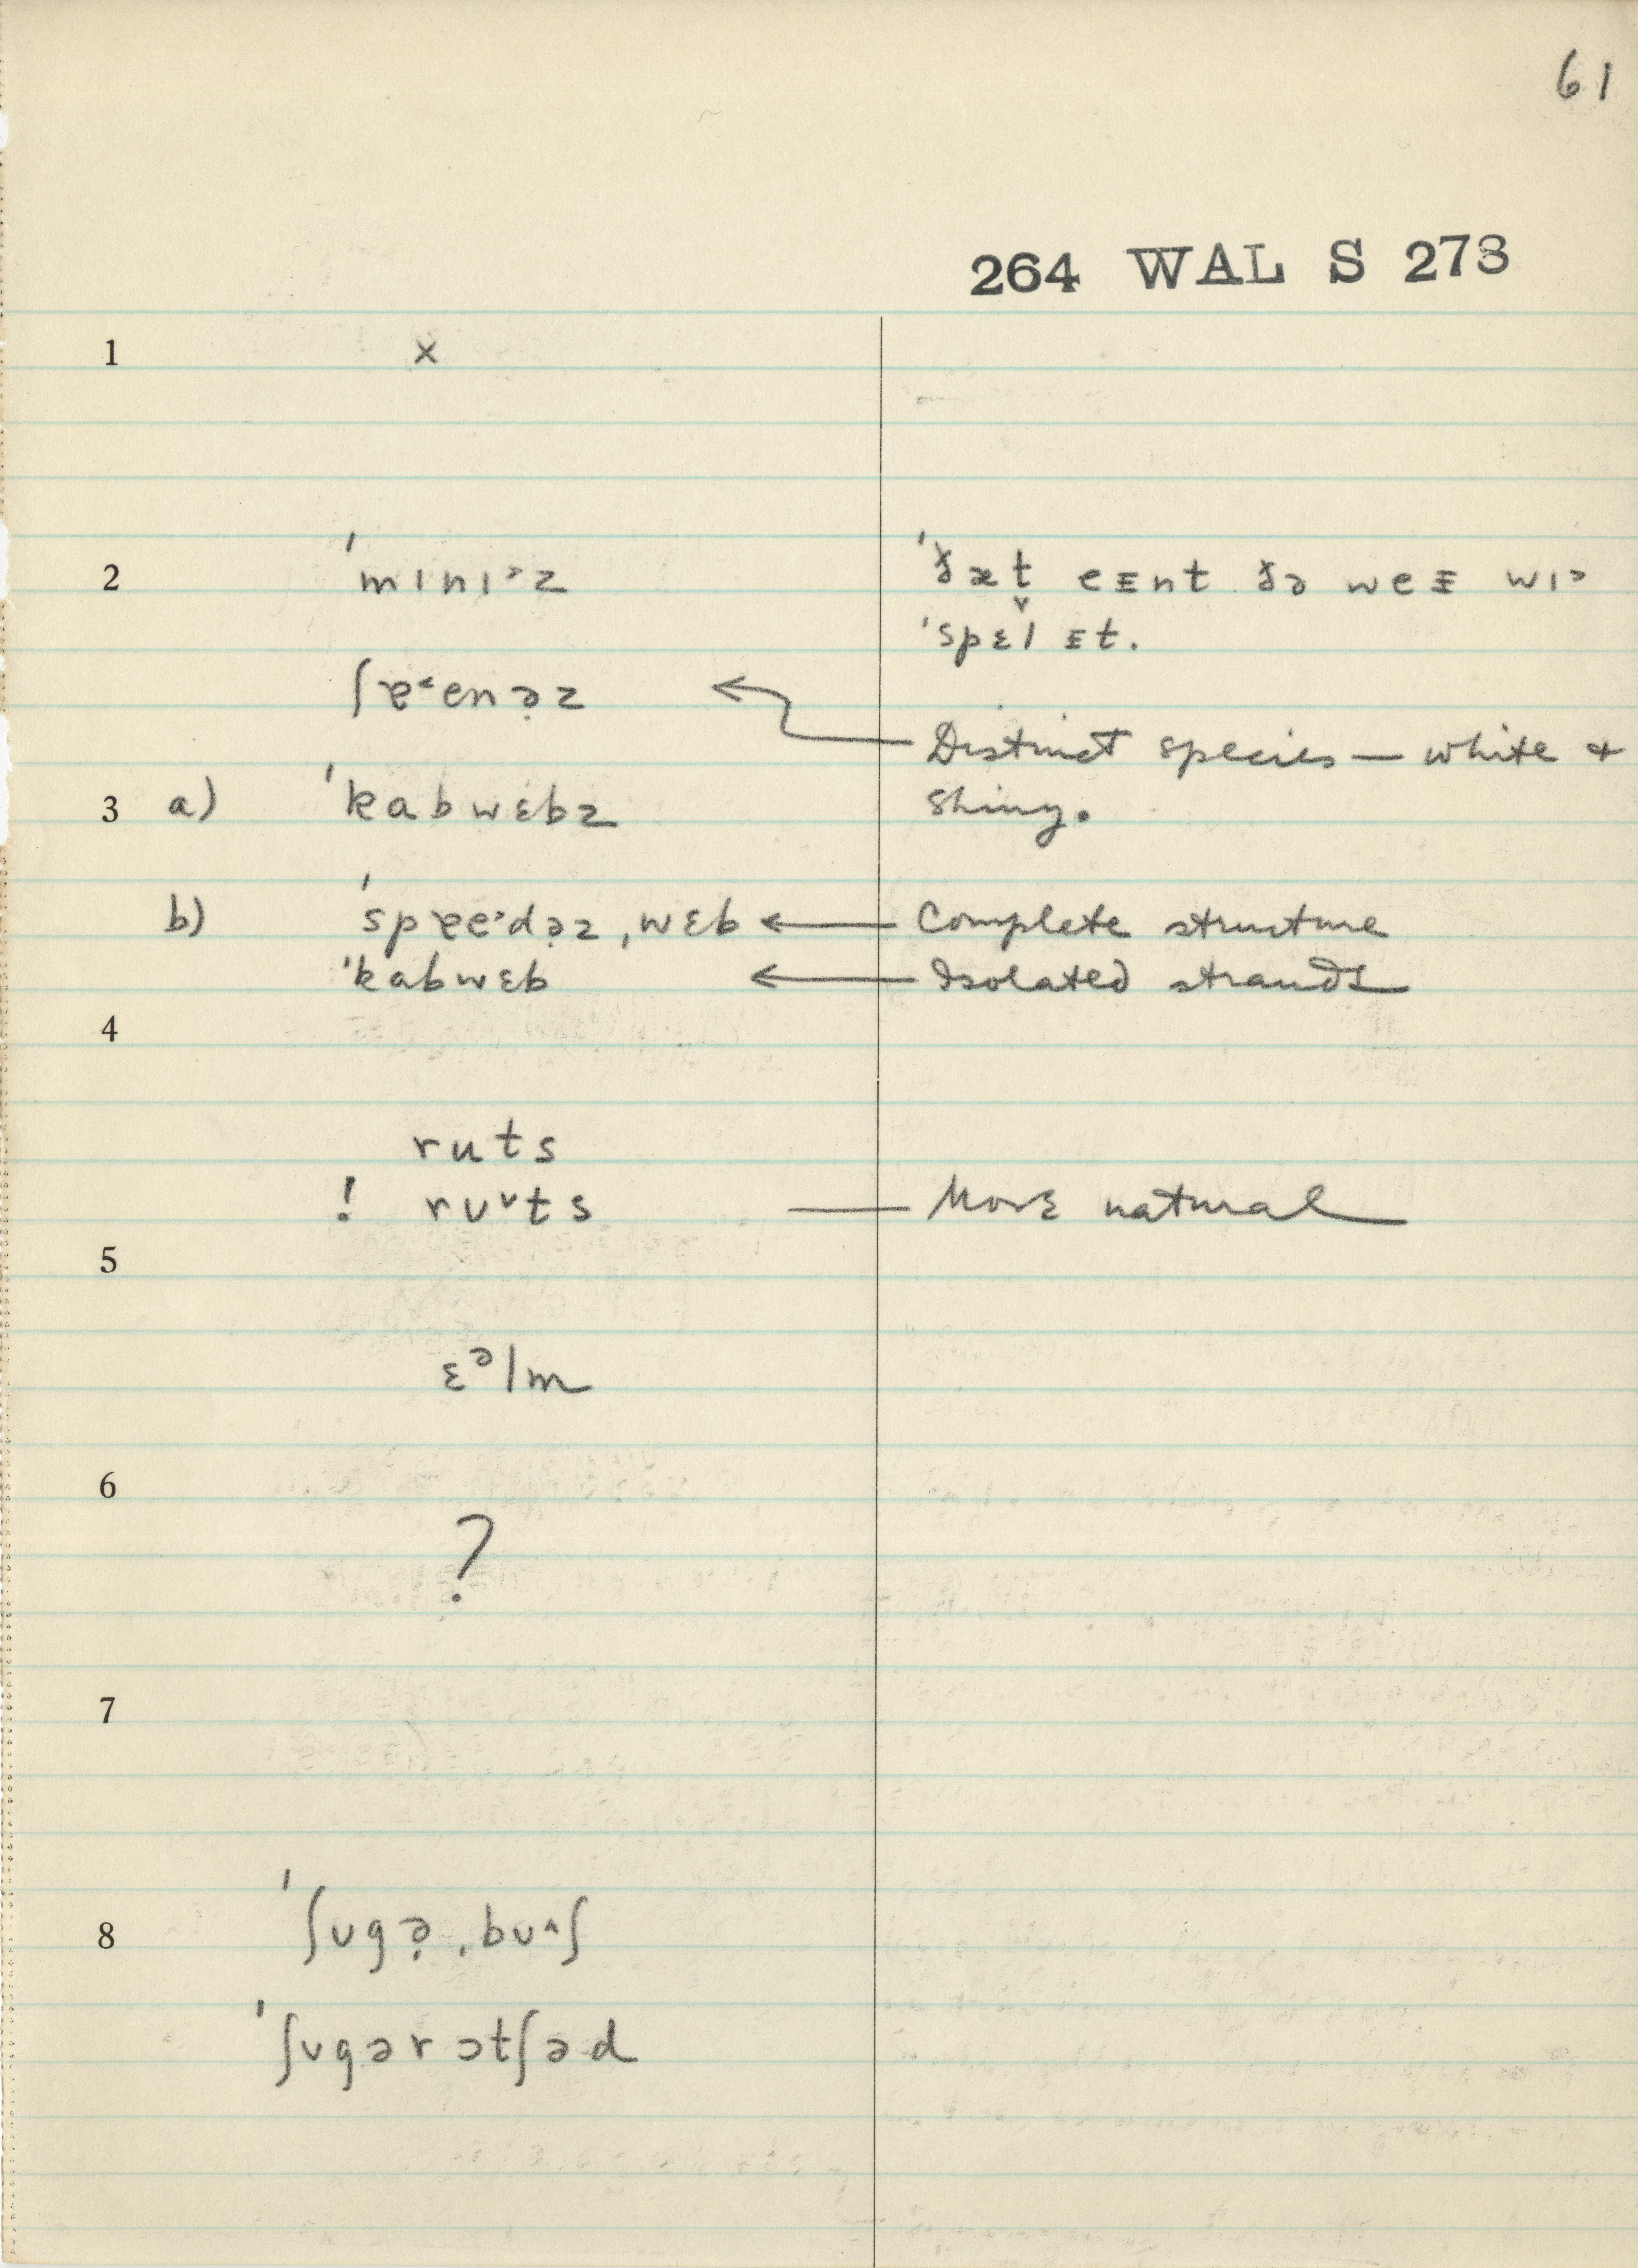 61
264 WAL S 273
1 x
2 ˈmɪnɪ˃z ˈðæt̬ eᵻnt ðə weᵻ wɪ˃
ˈspɛl ᵻt.
ʃɐ˂enə̣z
Distinct species — white +
3 a) ˈkabwɛbz shiny.
b) ˈspɐe˃də̣z ˌwɛb ← Complete structure
ˈkabwɛb ← Isolated strands
4
ruts
! rʊ˅ts — More natural
5
ɛᵊlm
6
?
7
8 ˈʃʊgə̣ ˌbʊ˄ʃ
ˈʃʊgər ɔtʃəd